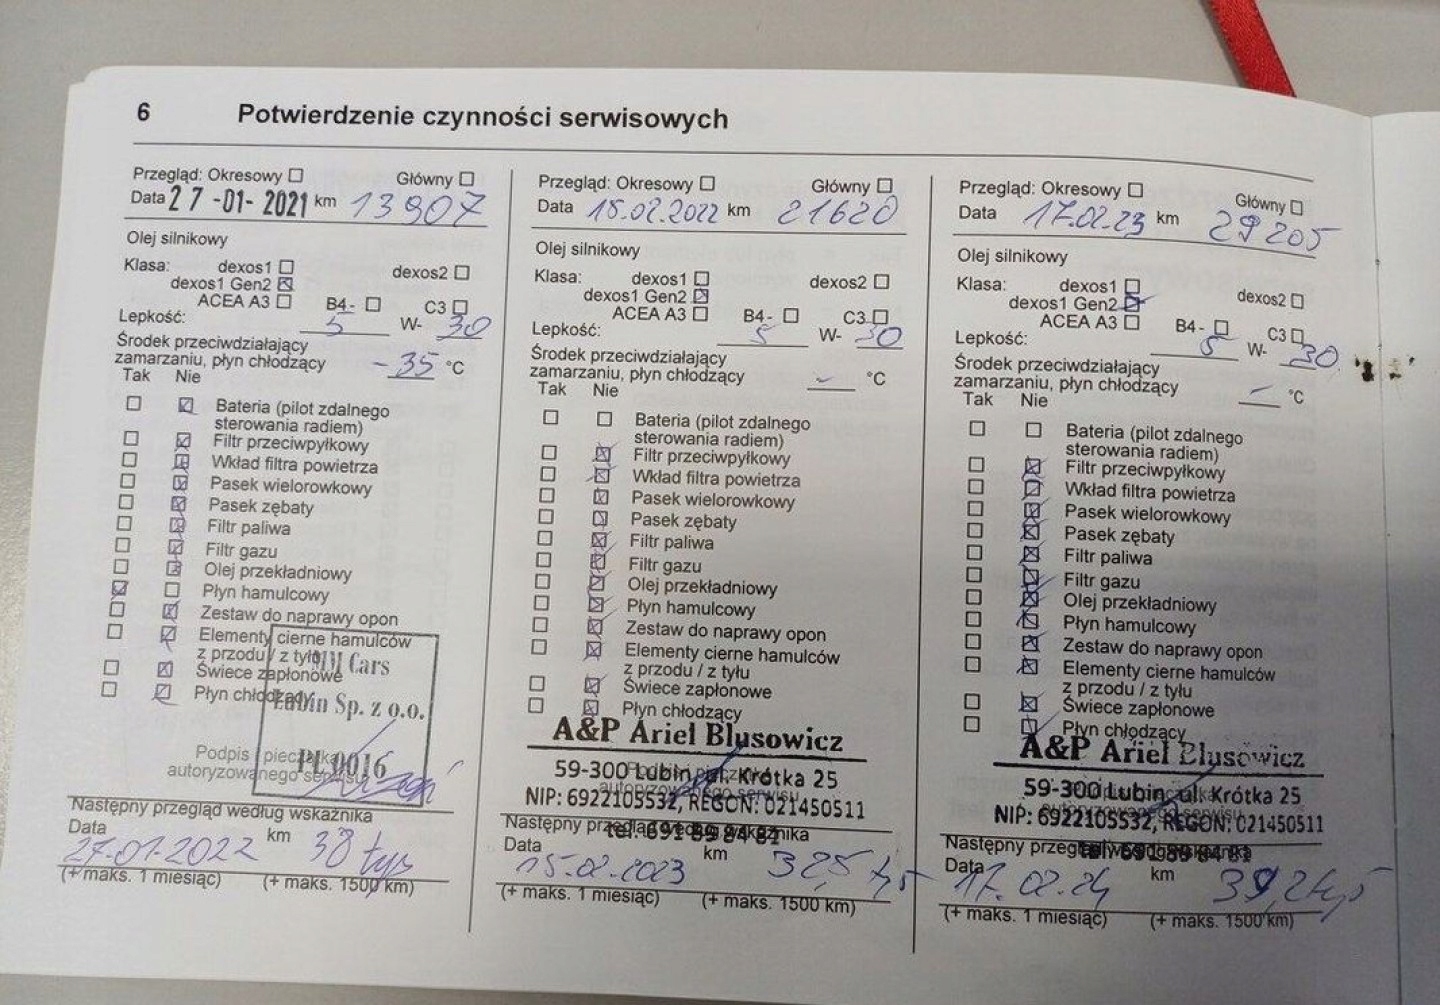 6 Potwierdzenie czynności serwisowych
Przegląd: Okresowy Główny
Data 27-01-2021 km 13907
Olej silnikowy
Klasa: dexos1 dexos2
dexos1 Gen2
ACEA A3 B4- C3
Lepkość: 5 W- 30
Środek przeciwdziałający
zamarzaniu, płyn chłodzący -35 °C
Tak Nie
Bateria (pilot zdalnego
sterowania radiem)
Filtr przeciwpyłkowy
Wkład filtra powietrza
Pasek wielorowkowy
Pasek zębaty
Filtr paliwa
Filtr gazu
Olej przekładniowy
Płyn hamulcowy
Zestaw do naprawy opon
Elementy cierne hamulców
z przodu / z tyłu
Świece zapłonowe
Płyn chłodzący
MM Cars
Lubin Sp. z o.o.
PL0016
Podpis i pieczątka
autoryzowanego serwisu
Następny przegląd według wskaźnika
Data 27-01-2022 km 38 tys
(+ maks. 1 miesiąc) (+ maks. 1500 km)
Przegląd: Okresowy Główny
Data 15.02.2022 km 21620
Olej silnikowy
Klasa: dexos1 dexos2
dexos1 Gen2
ACEA A3 B4- C3
Lepkość: 5 W- 30
Środek przeciwdziałający
zamarzaniu, płyn chłodzący - °C
Tak Nie
Bateria (pilot zdalnego
sterowania radiem)
Filtr przeciwpyłkowy
Wkład filtra powietrza
Pasek wielorowkowy
Pasek zębaty
Filtr paliwa
Filtr gazu
Olej przekładniowy
Płyn hamulcowy
Zestaw do naprawy opon
Elementy cierne hamulców
z przodu / z tyłu
Świece zapłonowe
Płyn chłodzący
A&P Ariel Blusowicz
59-300 Lubin ul. Krótka 25
autoryzowanego serwisu
NIP: 6922105532, REGON: 021450511
Następny przegląd według wskaźnika
tel. 691 89 84 81
Data 15.02.2023 km
(+ maks. 1 miesiąc) (+ maks. 1500 km)
Przegląd: Okresowy Główny
Data 17.02.23 km 29205
Olej silnikowy
Klasa: dexos1 dexos2
dexos1 Gen2
ACEA A3 B4- C3
Lepkość: 5 W- 30
Środek przeciwdziałający
zamarzaniu, płyn chłodzący - °C
Tak Nie
Bateria (pilot zdalnego
sterowania radiem)
Filtr przeciwpyłkowy
Wkład filtra powietrza
Pasek wielorowkowy
Pasek zębaty
Filtr paliwa
Filtr gazu
Olej przekładniowy
Płyn hamulcowy
Zestaw do naprawy opon
Elementy cierne hamulców
z przodu / z tyłu
Świece zapłonowe
Płyn chłodzący
A&P Ariel Blusowicz
59-300 Lubin ul. Krótka 25
autoryzowanego serwisu
NIP: 6922105532, REGON: 021450511
Następny przegląd według wskaźnika
tel. 691 89 84 81
Data 17.02.24 km
(+ maks. 1 miesiąc) (+ maks. 1500 km)